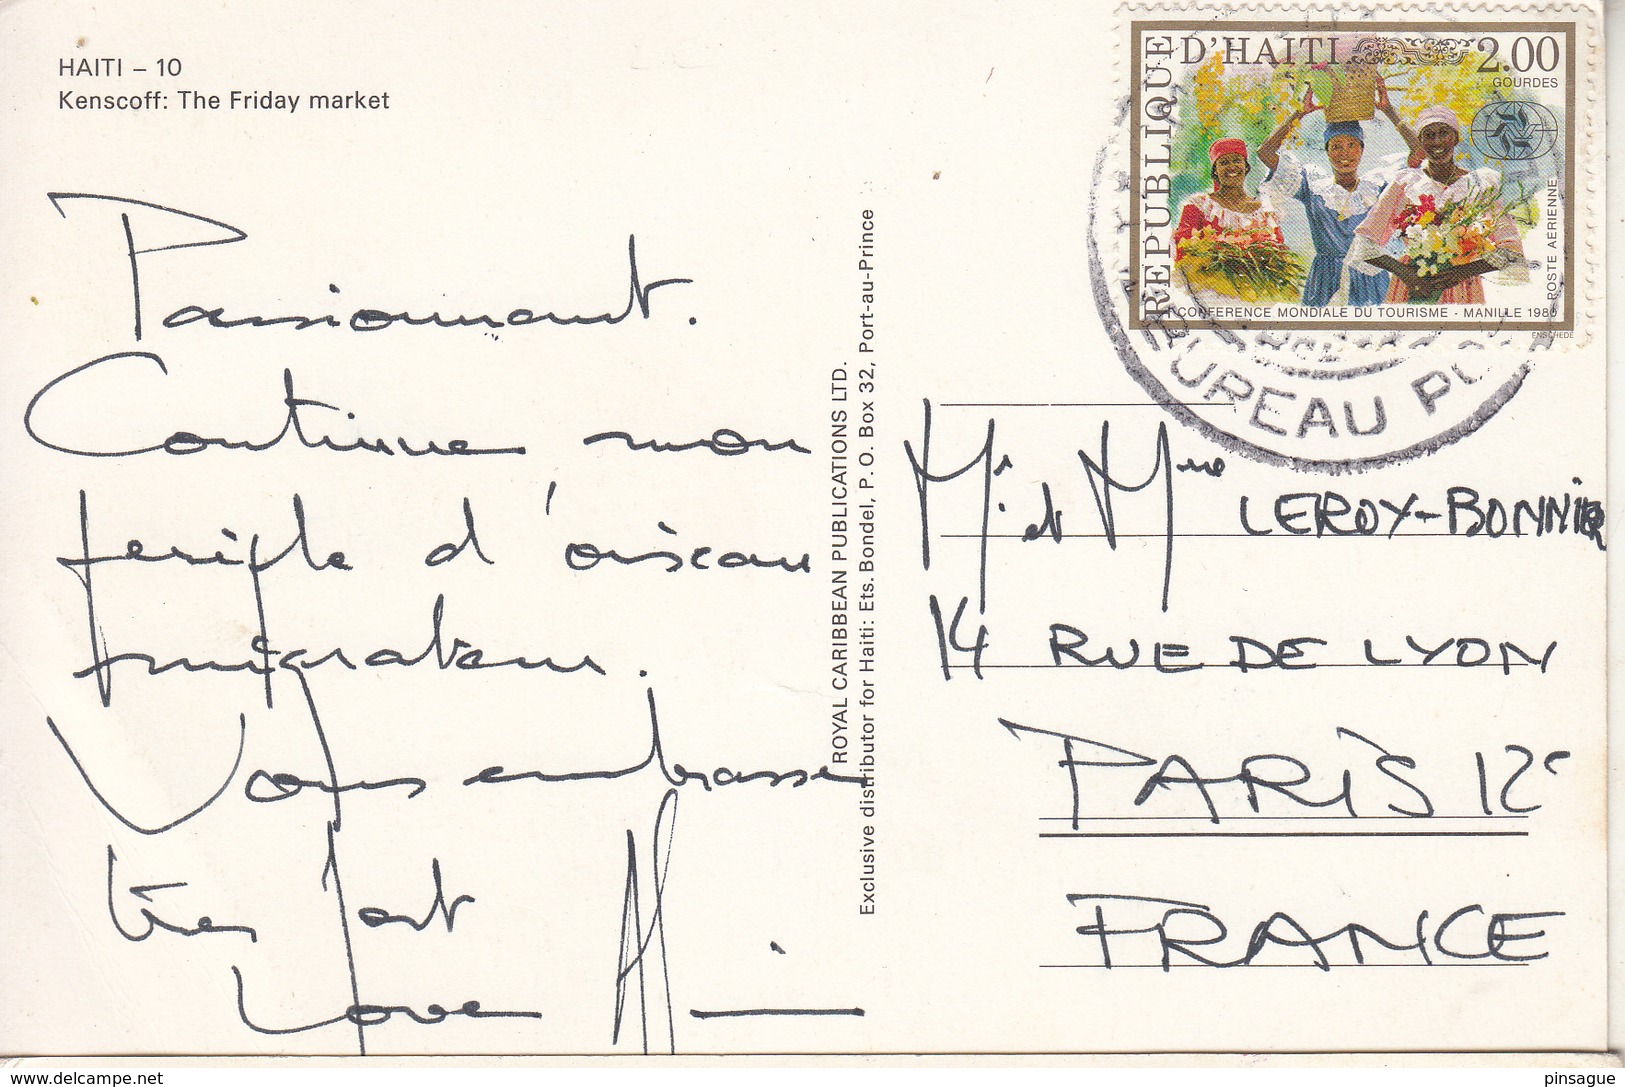 HAITI – 10
Kenscoff: The Friday market
Passionnant.
Continue mon
periple d'oiseau
migrateur.
Vous embrasse
très fort
Love
ROYAL CARIBBEAN PUBLICATIONS LTD.
Exclusive distributor for Haiti: Ets. Bondel, P. O. Box 32, Port-au-Prince
REPUBLIQUE D'HAITI 2.00
GOURDES
POSTE AERIENNE
CONFERENCE MONDIALE DU TOURISME - MANILLE 1980
ENSCHEDE
BUREAU
Mr et Mme LEROY-BONNIER
14 RUE DE LYON
PARIS 12e
FRANCE
www.delcampe.net
pinsague